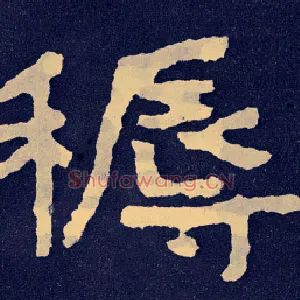 䅶
Shufawang.CN